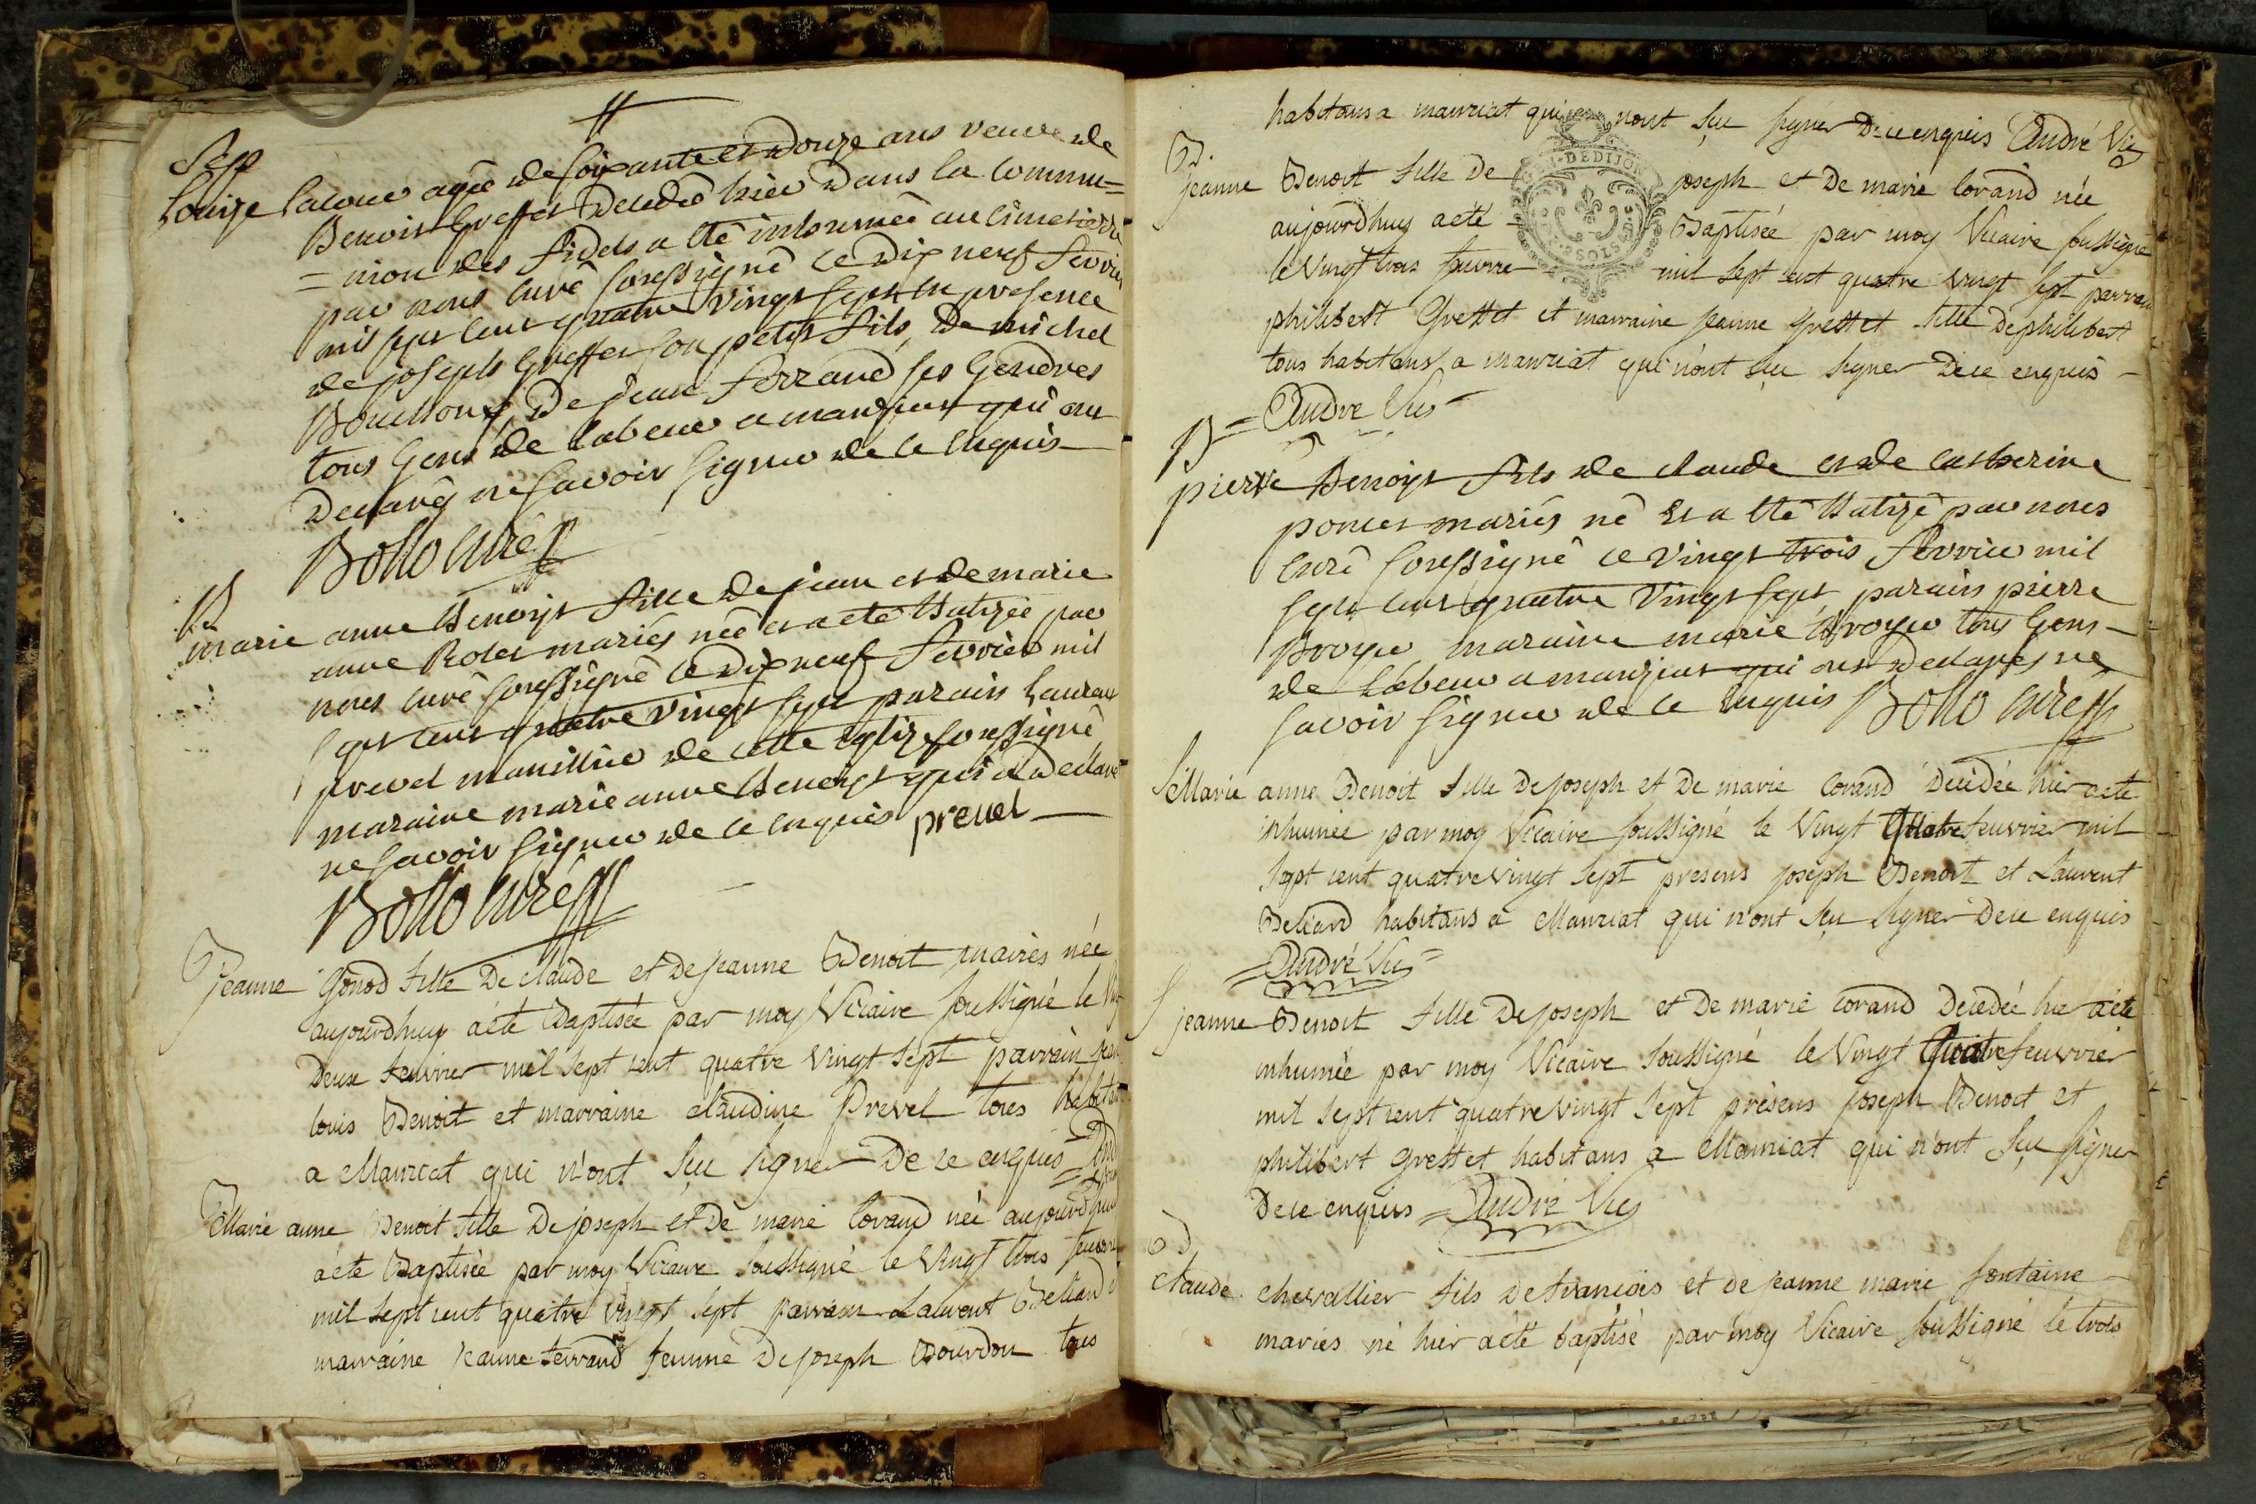 Sep
Louize Lacour agée de soixante et Douze ans veuve de
Benoist Greffet Decedée hier Dans la Commu=
=nion des fidels a été inhumée au cimetiere
par nous curé soussigné le Dix neuf fevrier
mil sept cent quatre vingt sept en presence
de joseph Greffet son petit fils, De michel
Bouchoux De jean ferrand ses Gendres
tous Gens de labeur a manziat qui ont
Declarés ne savoir signer de ce enquis
Bollo curé
B
marie anne Benoist fille De jean et de marie
anne Rolet mariés née et a eté batizée par
nous curé soussigné le Dix neuf fevrier mil
sept cent quatre vingt sept parain Laurent
prevel manillier de cette eglize soussigné
maraine marie anne Benoist qui a Declaré
ne savoir signer de ce enquis prevel
Bollo curé
B
jeanne Gonod fille De claude et de jeanne Benoit mairès née
aujourdhuy aété Baptisée par moy Vicaire soussigné le
Deux feuvrier mil sept cent quatre vingt sept parrain
louis Benoit et marraine claudine Prevel tous
a Manziat qui n'ont sçu signer De ce enquis
Marie anne Benoit fille De joseph et De marie Corand née aujourdhuy
aété Baptisée par moy Vicaire soussigné le Vingt trois feuvrier
mil sept cent quatre vingt sept parrain Laurent Beliand
marraine jeanne ferrand femme De joseph Bourdon tous
habitans a manziat qui nont sçu signer De ce enquis André Vic
B.
jeanne Benoit fille De joseph et De marie Corand née
aujourdhuy aété Baptisée par moy Vicaire soussigné
le Vingt trois feuvrier mil sept cent quatre vingt sept parrain
philibert Grettet et marraine jeanne Grettet fille De philibert
tous habitans a manziat qui n'ont sçu signer De ce enquis
DEDIJON
André Vic
B
pierre Benoist fils de claude et de catherine
poncet mariés né et a été batizé par nous
curé soussigné le vingt trois fevrier mil
sept cent quatre vingt sept parain pierre
Broyer maraine marie Broyer tous Gens
de labeur a manziat qui ont Declarés ne
savoir signer de ce enquis Bollo curé
S
Marie anne Benoit fille De joseph et De marie Corand Decedée hier aété
inhumée par moy Vicaire soussigné le Vingt Quatre feuvrier mil
sept cent quatrevingt sept presens joseph Benoit et Laurent
Beliard habitans a Manziat qui n'ont sçu signer De ce enquis
André Vic
S
jeanne Benoit fille De joseph et De marie Corand Decedée hier aété
inhumée par moy Vicaire soussigné le Vingt Quatre feuvrier
mil sept cent quatrevingt sept présens joseph Benoit et
philibert Grettet habitans a Manziat qui n'ont sçu signer
De ce enquis André Vic
B
claude chevallier fils De francois et de jeanne marie fontaine
mariés né hier aété baptisé par moy Vicaire soussigné le trois